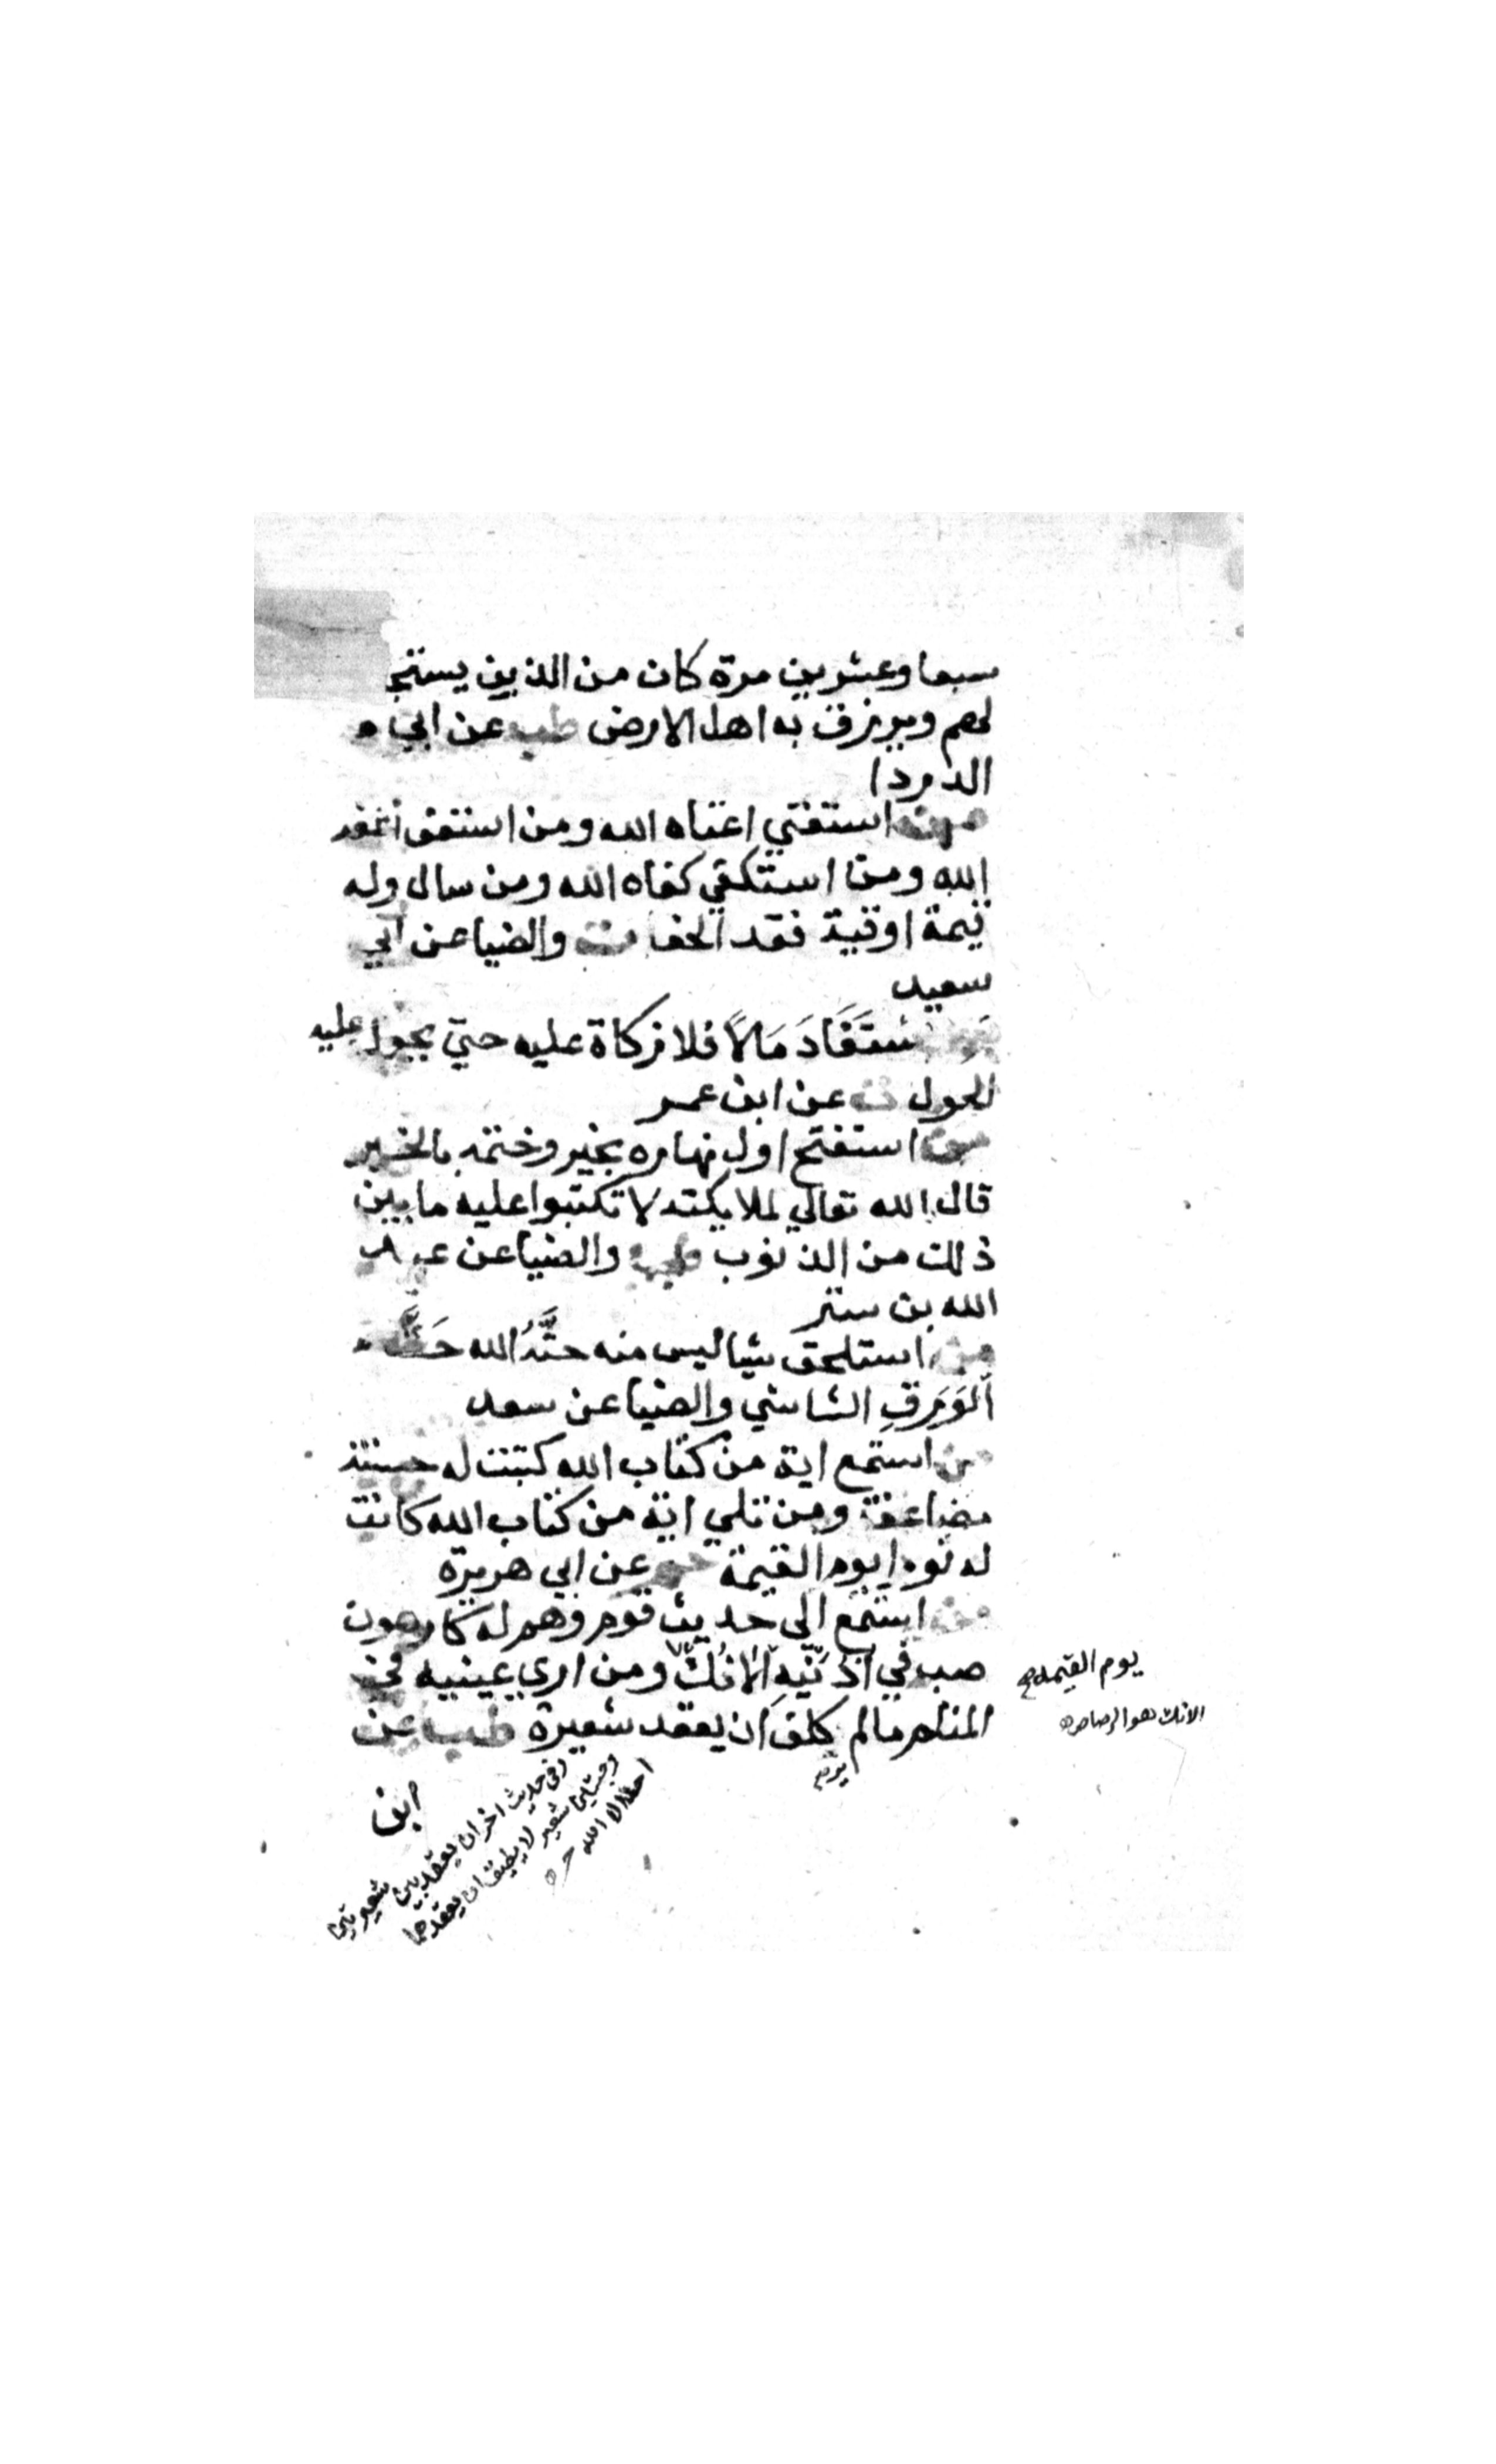 سبعا وعشرين مرة كان من الذين يستج
لهم ويرزق به اهل الارض طب عن ابي
الدردا
من استغني اغناه الله ومن استعف اعفه
الله ومن استكفي كفاه الله ومن سال وله
قيمة اوقية فقد الحف ن والضيا عن ابي
سعيد
من استَفَادَ مَالاً فلا زكاة عليه حتي يحول عليه
الحول ت عن ابن عمر
من استفتح اول نهاره بخير وختمه بالخير
قال الله تعالي لملايكته لا تكتبوا عليه ما بين
ذلك من الذنوب طب والضيا عن عبد
الله بن بسر
من استلحق شيا ليس منه حتَّهُ الله حَتَّ
الوَرَقِ الشاشي والضيا عن سعد
من استمع اية من كتاب الله كتبت له حسنة
مضاعفة ومن تلي اية من كتاب الله كانت
له نورا يوم القيمة حم عن ابي هريرة
من استمع الى حديث قوم وهم له كارهون
صب في اُذنَيه الانُك ومن اري عينيه في
المنام مالم ير كلف ان يعقد شعيرة طب عن
ابن
يوم القيمه صح
الانك هو الرصاص
وفي حديث اخر ان يعقد بين شعيرتين
لا يطيق ان يعقدهما
احد الا الله